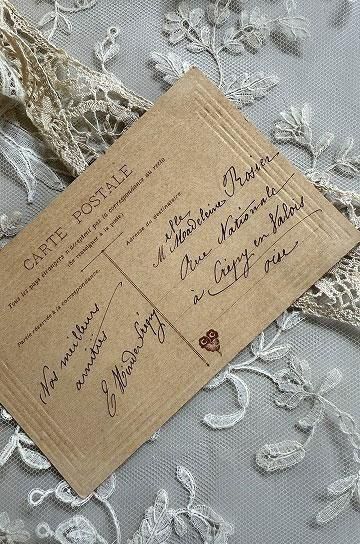 CARTE POSTALE
Tous les pays étrangers n'acceptent pas la correspondance au verso
(Se renseigner à la poste).
Partie réservée à la correspondance.
Nos meilleurs
amitiés
E
Adresse du destinataire.
Mlle Madeleine Rosier
Rue Nationale
à Crépy en Valois
oise